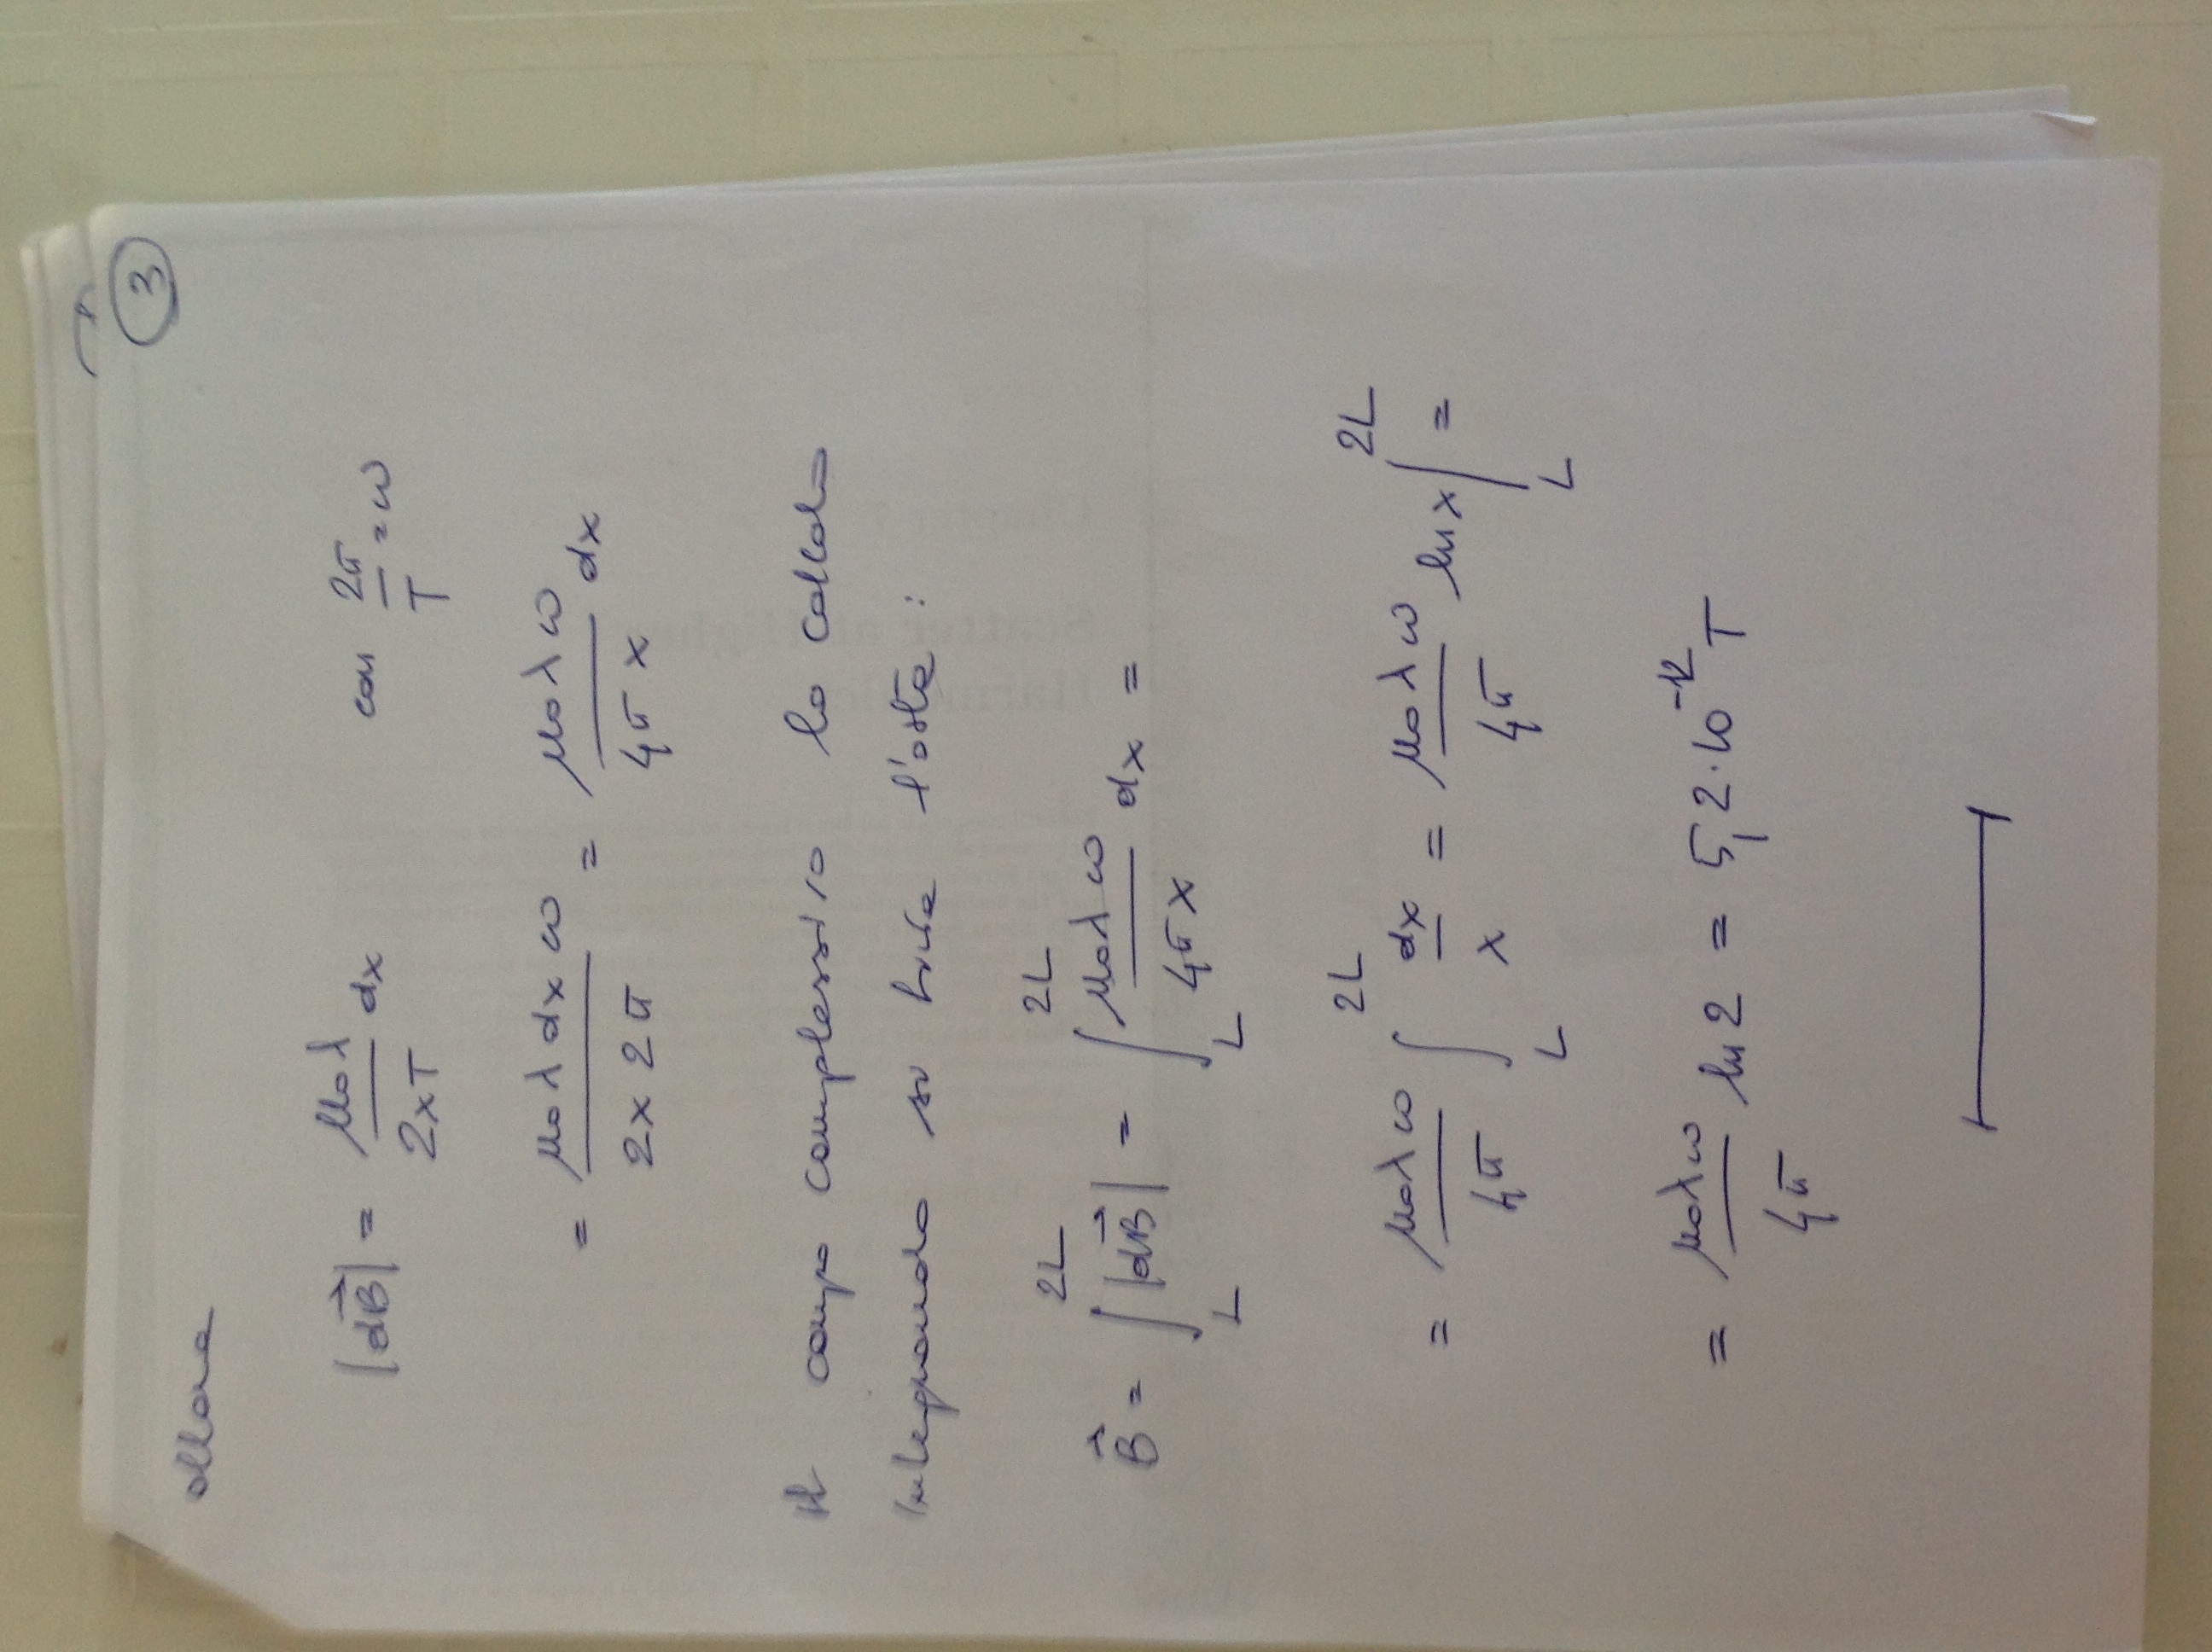 3
allora
|dB⃗| = μ₀λ / 2xT dx con 2π / T = ω
= μ₀λ dx ω / 2x 2π = μ₀λω / 4π x dx
Il campo complessivo lo calcolo
integrando su tutta l'asta :
B⃗ = ∫_L^2L |dB⃗| = ∫_L^2L μ₀λω / 4πx dx =
= μ₀λω / 4π ∫_L^2L dx / x = μ₀λω / 4π ln x |_L^2L =
= μ₀λω / 4π ln 2 = 5,2·10⁻¹² T